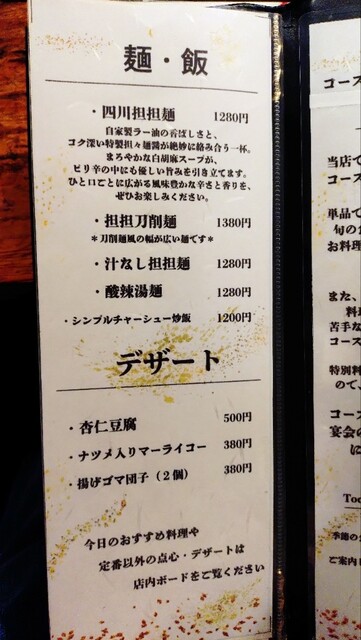 麺・飯
・四川担担麺 1280円
自家製ラー油の香ばしさと、
コク深い特製担々麺醤が絶妙に絡み合う一杯。
まろやかな白胡麻スープが、
ピリ辛の中にも優しい旨みを引き立てます。
ひと口ごとに広がる風味豊かな辛さと香りを、
ぜひお楽しみください。
・担担刀削麺 1380円
＊刀削麺風の幅が広い麺です＊
・汁なし担担麺 1280円
・酸辣湯麺 1280円
・シンプルチャーシュー炒飯 1200円
デザート
・杏仁豆腐 500円
・ナツメ入りマーライコー 380円
・揚げゴマ団子（２個） 380円
今日のおすすめ料理や
定番以外の点心・デザートは
店内ボードをご覧ください
コース
当店で
コース
単品で
旬の食
お料理
また、
料理
苦手な
コース
特別料
ので、
コース
宴会の
に
Too
季節の
ご案内